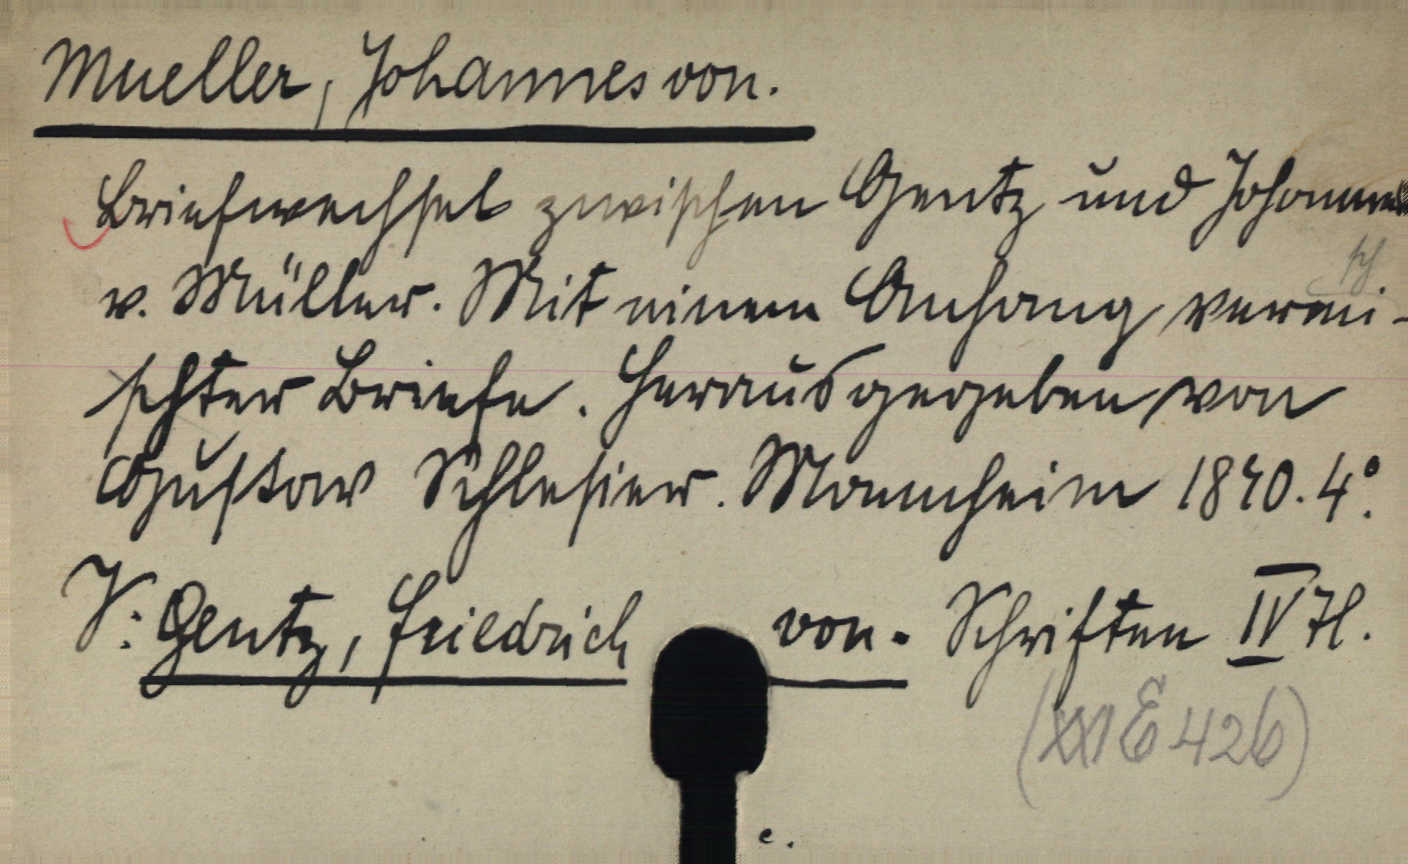 Mueller, Johannes von.
Briefwechsel zwischen Gentz und Johannes
v. Müller. Mit einem Anhang vermi-
schter Briefe. Herausgegeben von
Gustav Schlesier. Mannheim 1840. 4°.
V: Gentz, Friedrich von. Schriften IV Tl.
(XXI E 426)
e.